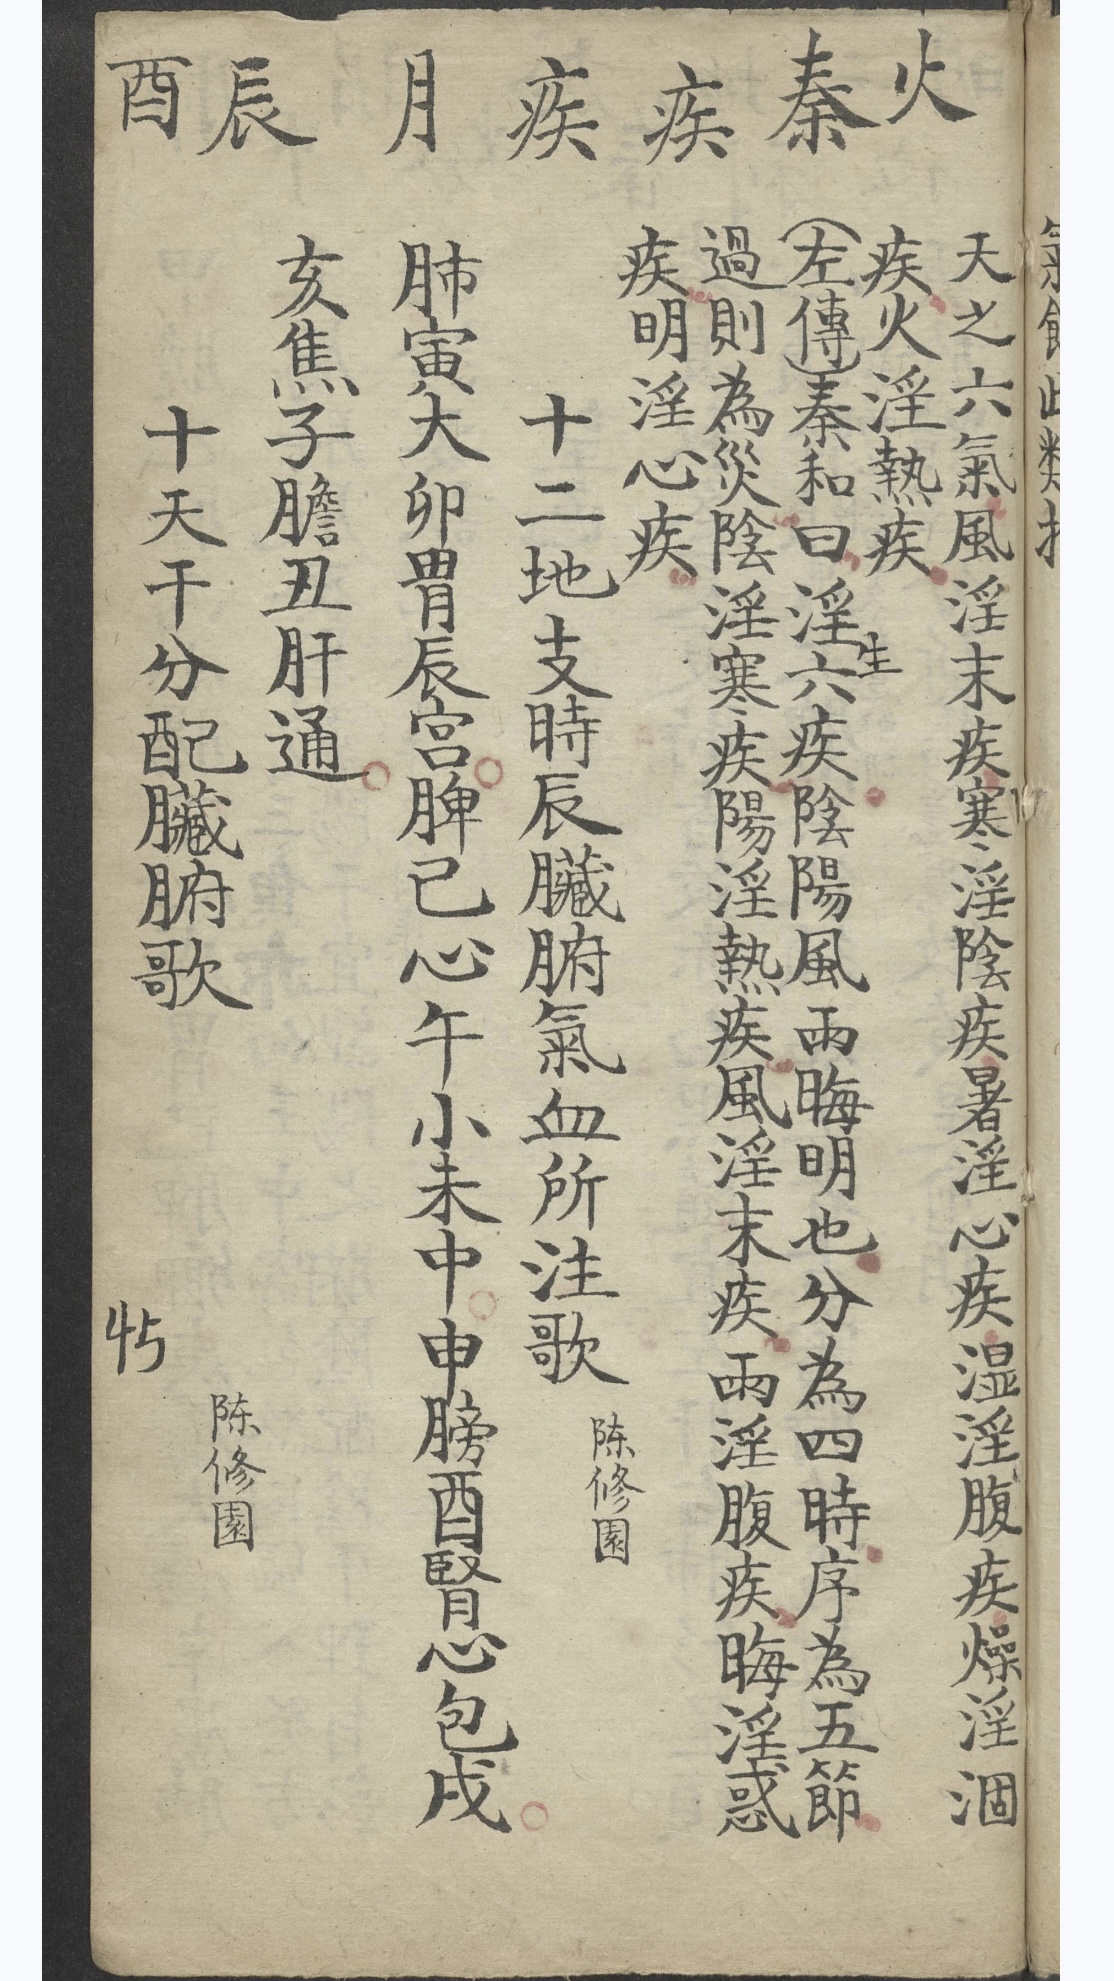 火
秦
疾
疾
月
辰
酉
天之六氣風淫末疾寒淫陰疾暑淫心疾湿淫腹疾燥淫涸
疾火淫熱疾
(左傳)秦和曰淫生六疾陰陽風雨晦明也分為四時序為五節
過則為災陰淫寒疾陽淫熱疾風淫末疾雨淫腹疾晦淫惑
疾明淫心疾
十二地支時辰臟腑氣血所注歌 陈修園
肺寅大卯胃辰宮脾己心午小未中申膀酉腎心包戌
亥焦子膽丑肝通
十天干分配臟腑歌 陈修園